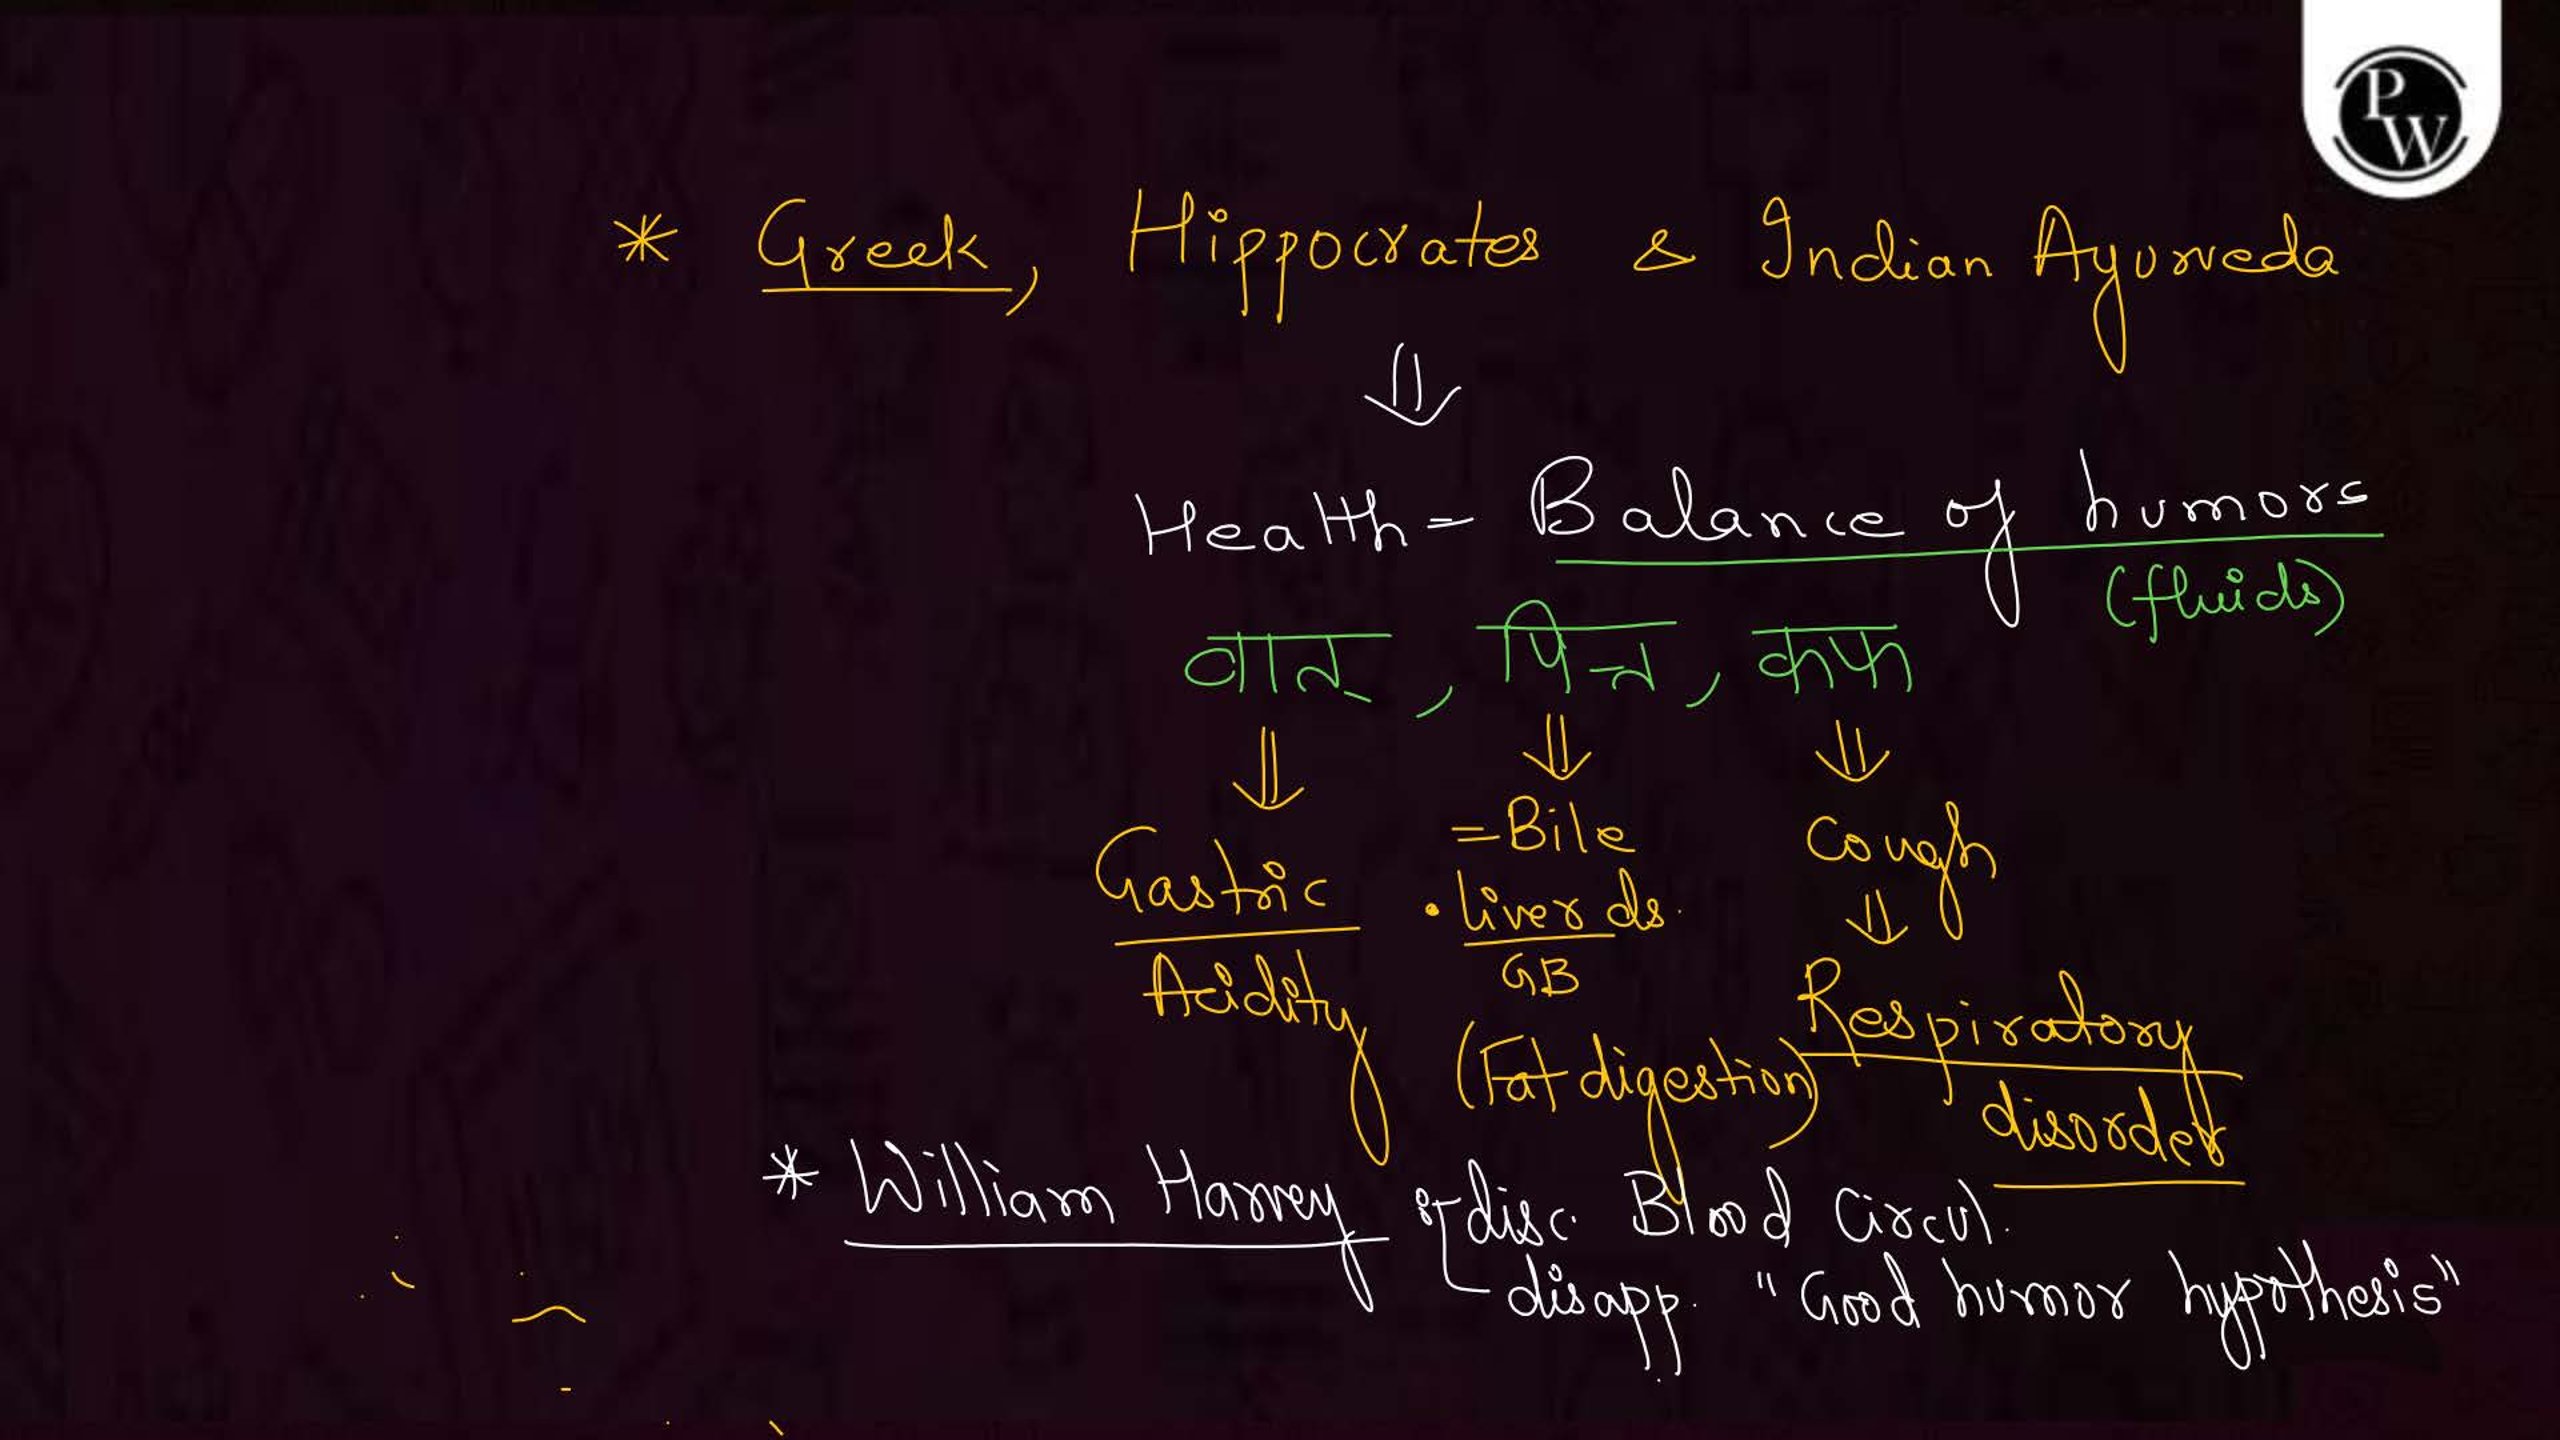 PW
* Greek, Hippocrates & Indian Ayurveda
⇓
Health = Balance of humors
(fluids)
वात, पित्त, कफ
⇓ ⇓ ⇓
Gastric
Acidity
= Bile
• liver ds.
GB
(Fat digestion)
Cough
⇓
Respiratory
disorder
* William Harvey : disc. Blood Circul.
disapp. "Good humor hypothesis"